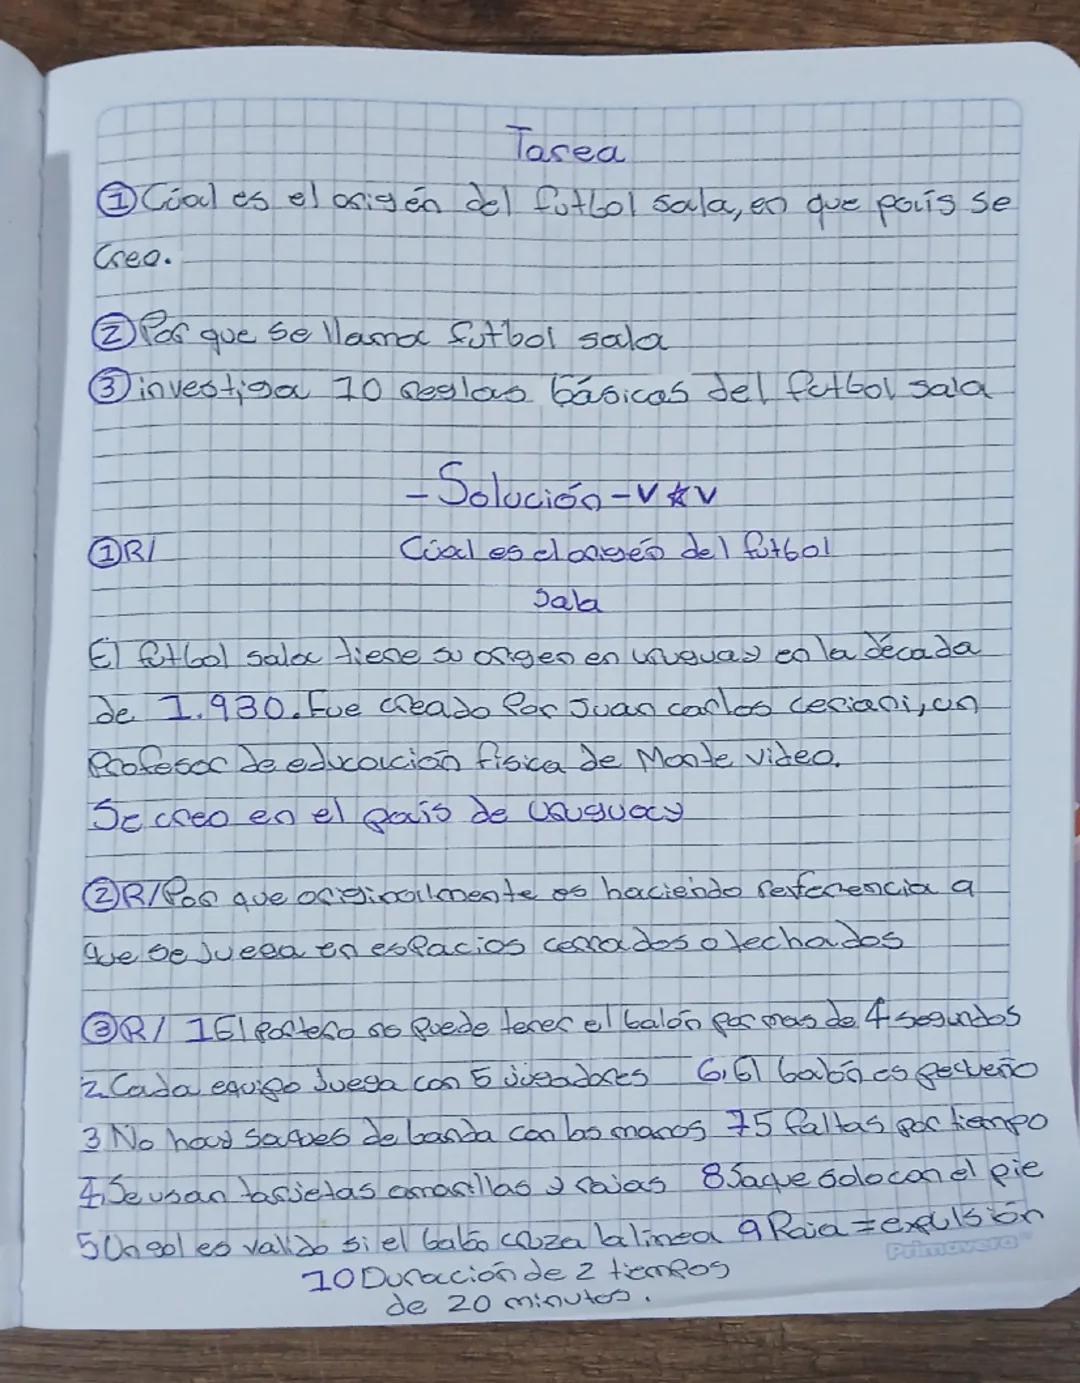 Tarea
① Cúal es el origén del futbol sala, en que país se
creo.
② Por que se llama futbol sala
③ investiga 10 reglas básicas del futbol sala
- Solución - V ☆ V
① R/ Cúal es el origén del futbol
sala
El futbol sala tiene su origen en uruguay en la década
de 1.930. Fue creado por Juan carlos ceriani, un
Profesor de educación física de Monte video.
Se creo en el país de Uruguay
② R/ Por que originalmente es haciendo referencia a
que se juega en espacios cerrados o techados
③ R/ 1 El portero no puede tener el balón por mas de 4 segundos
2. Cada equipo juega con 5 jugadores 6, El balón es pequeño
3 No hay saques de banda con las manos 7 5 faltas por tiempo
4, Se usan tarjetas amarillas y rojas 8 Saque solo con el pie
5 Un gol es valido si el balón cruza la línea 9 Roja = expulsión
Primavera
10 Duracción de 2 tiempos
de 20 minutos.